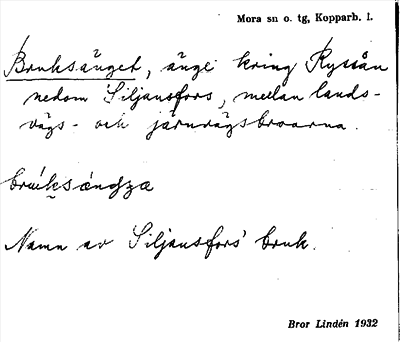 Mora sn o. tg, Kopparb. l.
Bruksänget, änge kring Ryssån
nedom Siljansfors, mellan lands-
vägs- och järnvägsbroarna.
Namn av Siljansfors' bruk.
Bror Lindén 1932